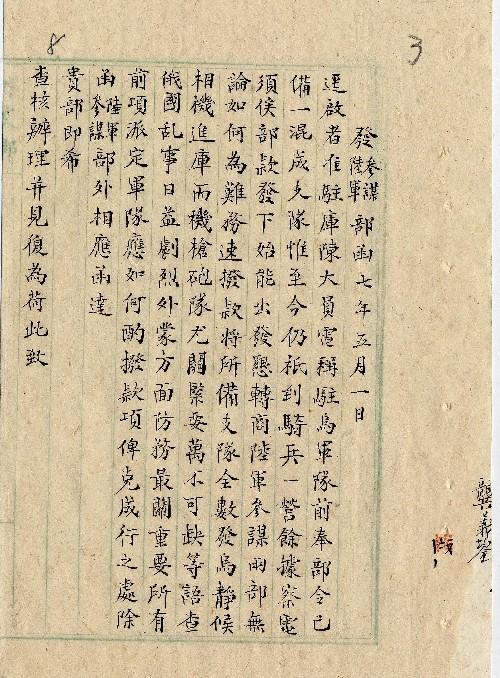 3
8
發參謀陸軍部函七年五月一日
逕啟者准駐庫陳大員電稱駐烏軍隊前奉部令已
備一混成支隊惟至今仍祇到騎兵一營餘據察電
須俟部款發下始能出發懇轉商陸軍參謀兩部無
論如何為難務速撥款將所備支隊全數發烏靜候
相機進庫而機槍砲隊尤關緊要萬不可缺等語查
俄國乱事日益劇烈外蒙方面防務最關重要所有
前項派定軍隊應如何酌撥款項俾克成行之處除
函陸軍參謀部外相應函達
貴部即希
查核辦理并見復為荷此致